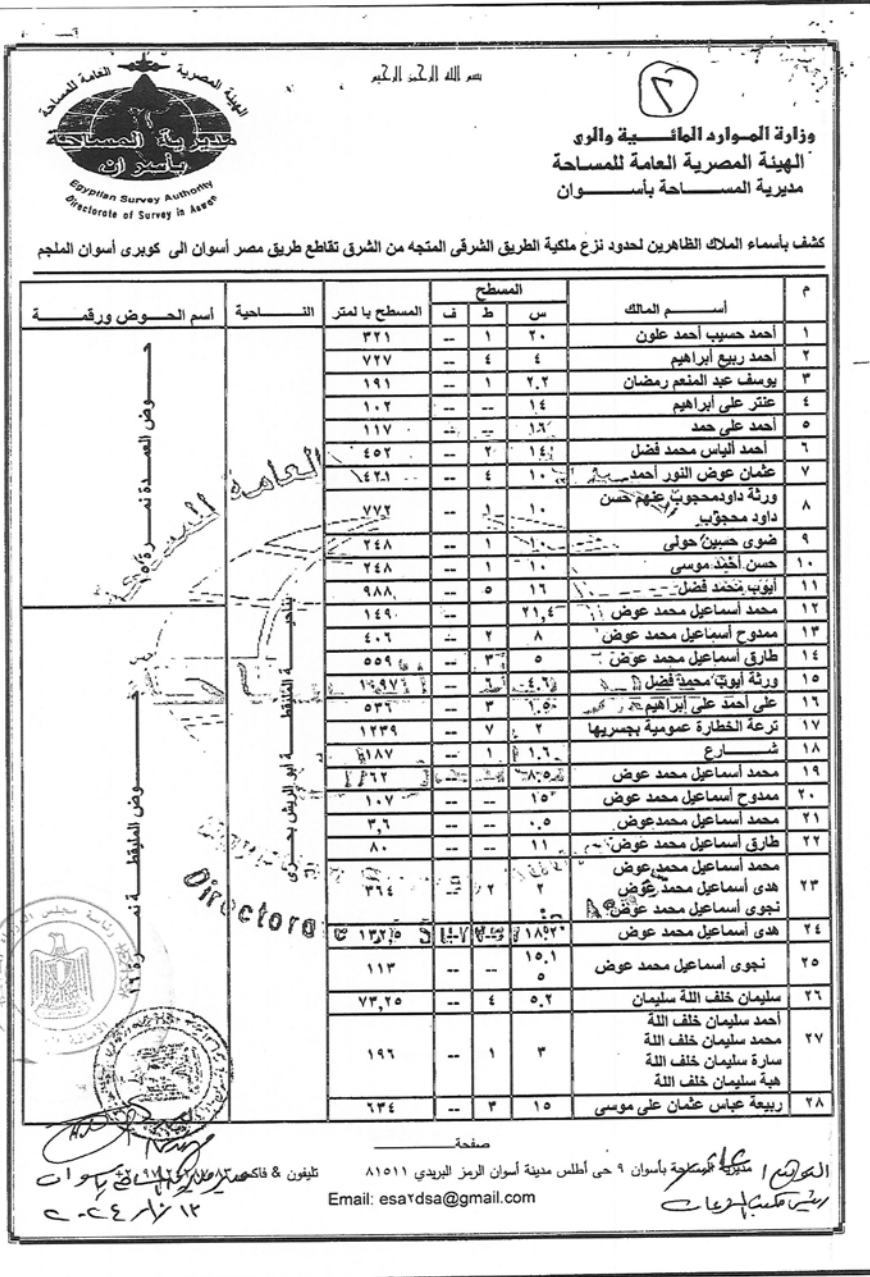 بسم الله الرحمن الرحيم
الهيئة المصرية العامة للمساحة
مديرية المساحة
بأسوان
Egyptian Survey Authority
Directorate of Survey in Aswan
٢
وزارة المـوارد المائـــــية والرى
الهيئة المصرية العامة للمساحة
مديرية المســـــاحة بأســـــوان
كشف بأسماء الملاك الظاهرين لحدود نزع ملكية الطريق الشرقى المتجه من الشرق تقاطع طريق مصر أسوان الى كوبرى أسوان الملجم
م أســـم المالك المسطح المسطح با لمتر النـــــاحية أسم الحـــوض ورقمـــــة
س ط ف
١ أحمد حسيب أحمد علون ٢٠ ١ -- ٣٢١
٢ أحمد ربيع أبراهيم ٤ ٤ -- ٧٢٧
٣ يوسف عبد المنعم رمضان ٢,٢ ١ -- ١٩١
٤ عنتر على أبراهيم ١٤ -- -- ١٠٢
٥ أحمد على حمد ١٦ -- -- ١١٧
٦ أحمد ألياس محمد فضل ١٤ ٢ -- ٤٥٢
٧ عثمان عوض النور أحمد ١٠ ٤ --
٨ ورثة داودمحجوب عنهم حسن
داود محجوب ١٠ ١ -- ٧٧٢
٩ ضوى حسين حولى ١٠ ١ -- ٢٤٨
١٠ حسن أحمد موسى ١٠ ١ -- ٢٤٨
١١ أيوب محمد فضل ١٦ ٥ -- ٩٨٨
١٢ محمد أسماعيل محمد عوض ٢١,٤ -- ١٤٩
١٣ ممدوح أسماعيل محمد عوض ٨ ٢ -- ٤٠٦
١٤ طارق أسماعيل محمد عوض ٥ ٣ -- ٥٥٩
١٥ ورثة أيوب محمد فضل ٤,٦ ٦ --
١٦ على أحمد على إبراهيم ١,٥ ٣ -- ٥٣٦
١٧ ترعة الخطارة عمومية بجسريها ٢ ٧ -- ١٢٣٩
١٨ شـــــارع ١,٦ ١ -- ١٨٧
١٩ محمد أسماعيل محمد عوض ٨,٥ -- -- ٦٢
٢٠ ممدوح أسماعيل محمد عوض ١٥ -- -- ١٠٧
٢١ محمد أسماعيل محمدعوض ٠,٥ -- -- ٣,٦
٢٢ طارق أسماعيل محمد عوض ١١ -- -- ٨٠
٢٣ محمد أسماعيل محمد عوض
هدى أسماعيل محمد عوض ٢ ٢ -- ٣٦٤
نجوى أسماعيل محمد عوض
٢٤ هدى أسماعيل محمد عوض
٢٥ نجوى أسماعيل محمد عوض ١٥,١
٥ -- -- ١١٣
٢٦ سليمان خلف اللة سليمان ٥,٢ ٤ -- ٧٣,٢٥
٢٧ أحمد سليمان خلف اللة
محمد سليمان خلف اللة
سارة سليمان خلف اللة ٣ ١ -- ١٩٦
هبة سليمان خلف اللة
٢٨ ربيعة عباس عثمان على موسى ١٥ ٣ -- ٦٣٤
حـــوض العمـــدة نمـــرة/١٥
حـــوض المليقطـــة نمـــرة ١٦
بناحيـــة المليقطـــة أبو الريش بحـــرى
صفحة
مديرية المساحة بأسوان ٩ حى أطلس مدينة أسوان الرمز البريدي ٨١٥١١ تليفون & فاكس
Email: esa٢dsa@gmail.com